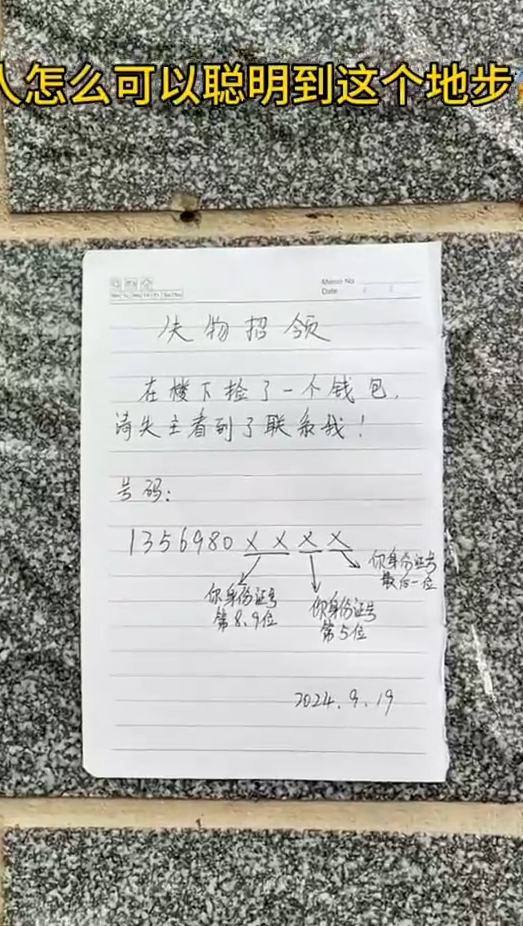 人怎么可以聪明到这个地步
Memo No.
Date
失物招领
在楼下捡了一个钱包,
请失主看到了联系我!
号码:
1356980××××
你身份证号
第8.9位
你身份证号
第5位
你身份证号
最后一位
2024.9.19